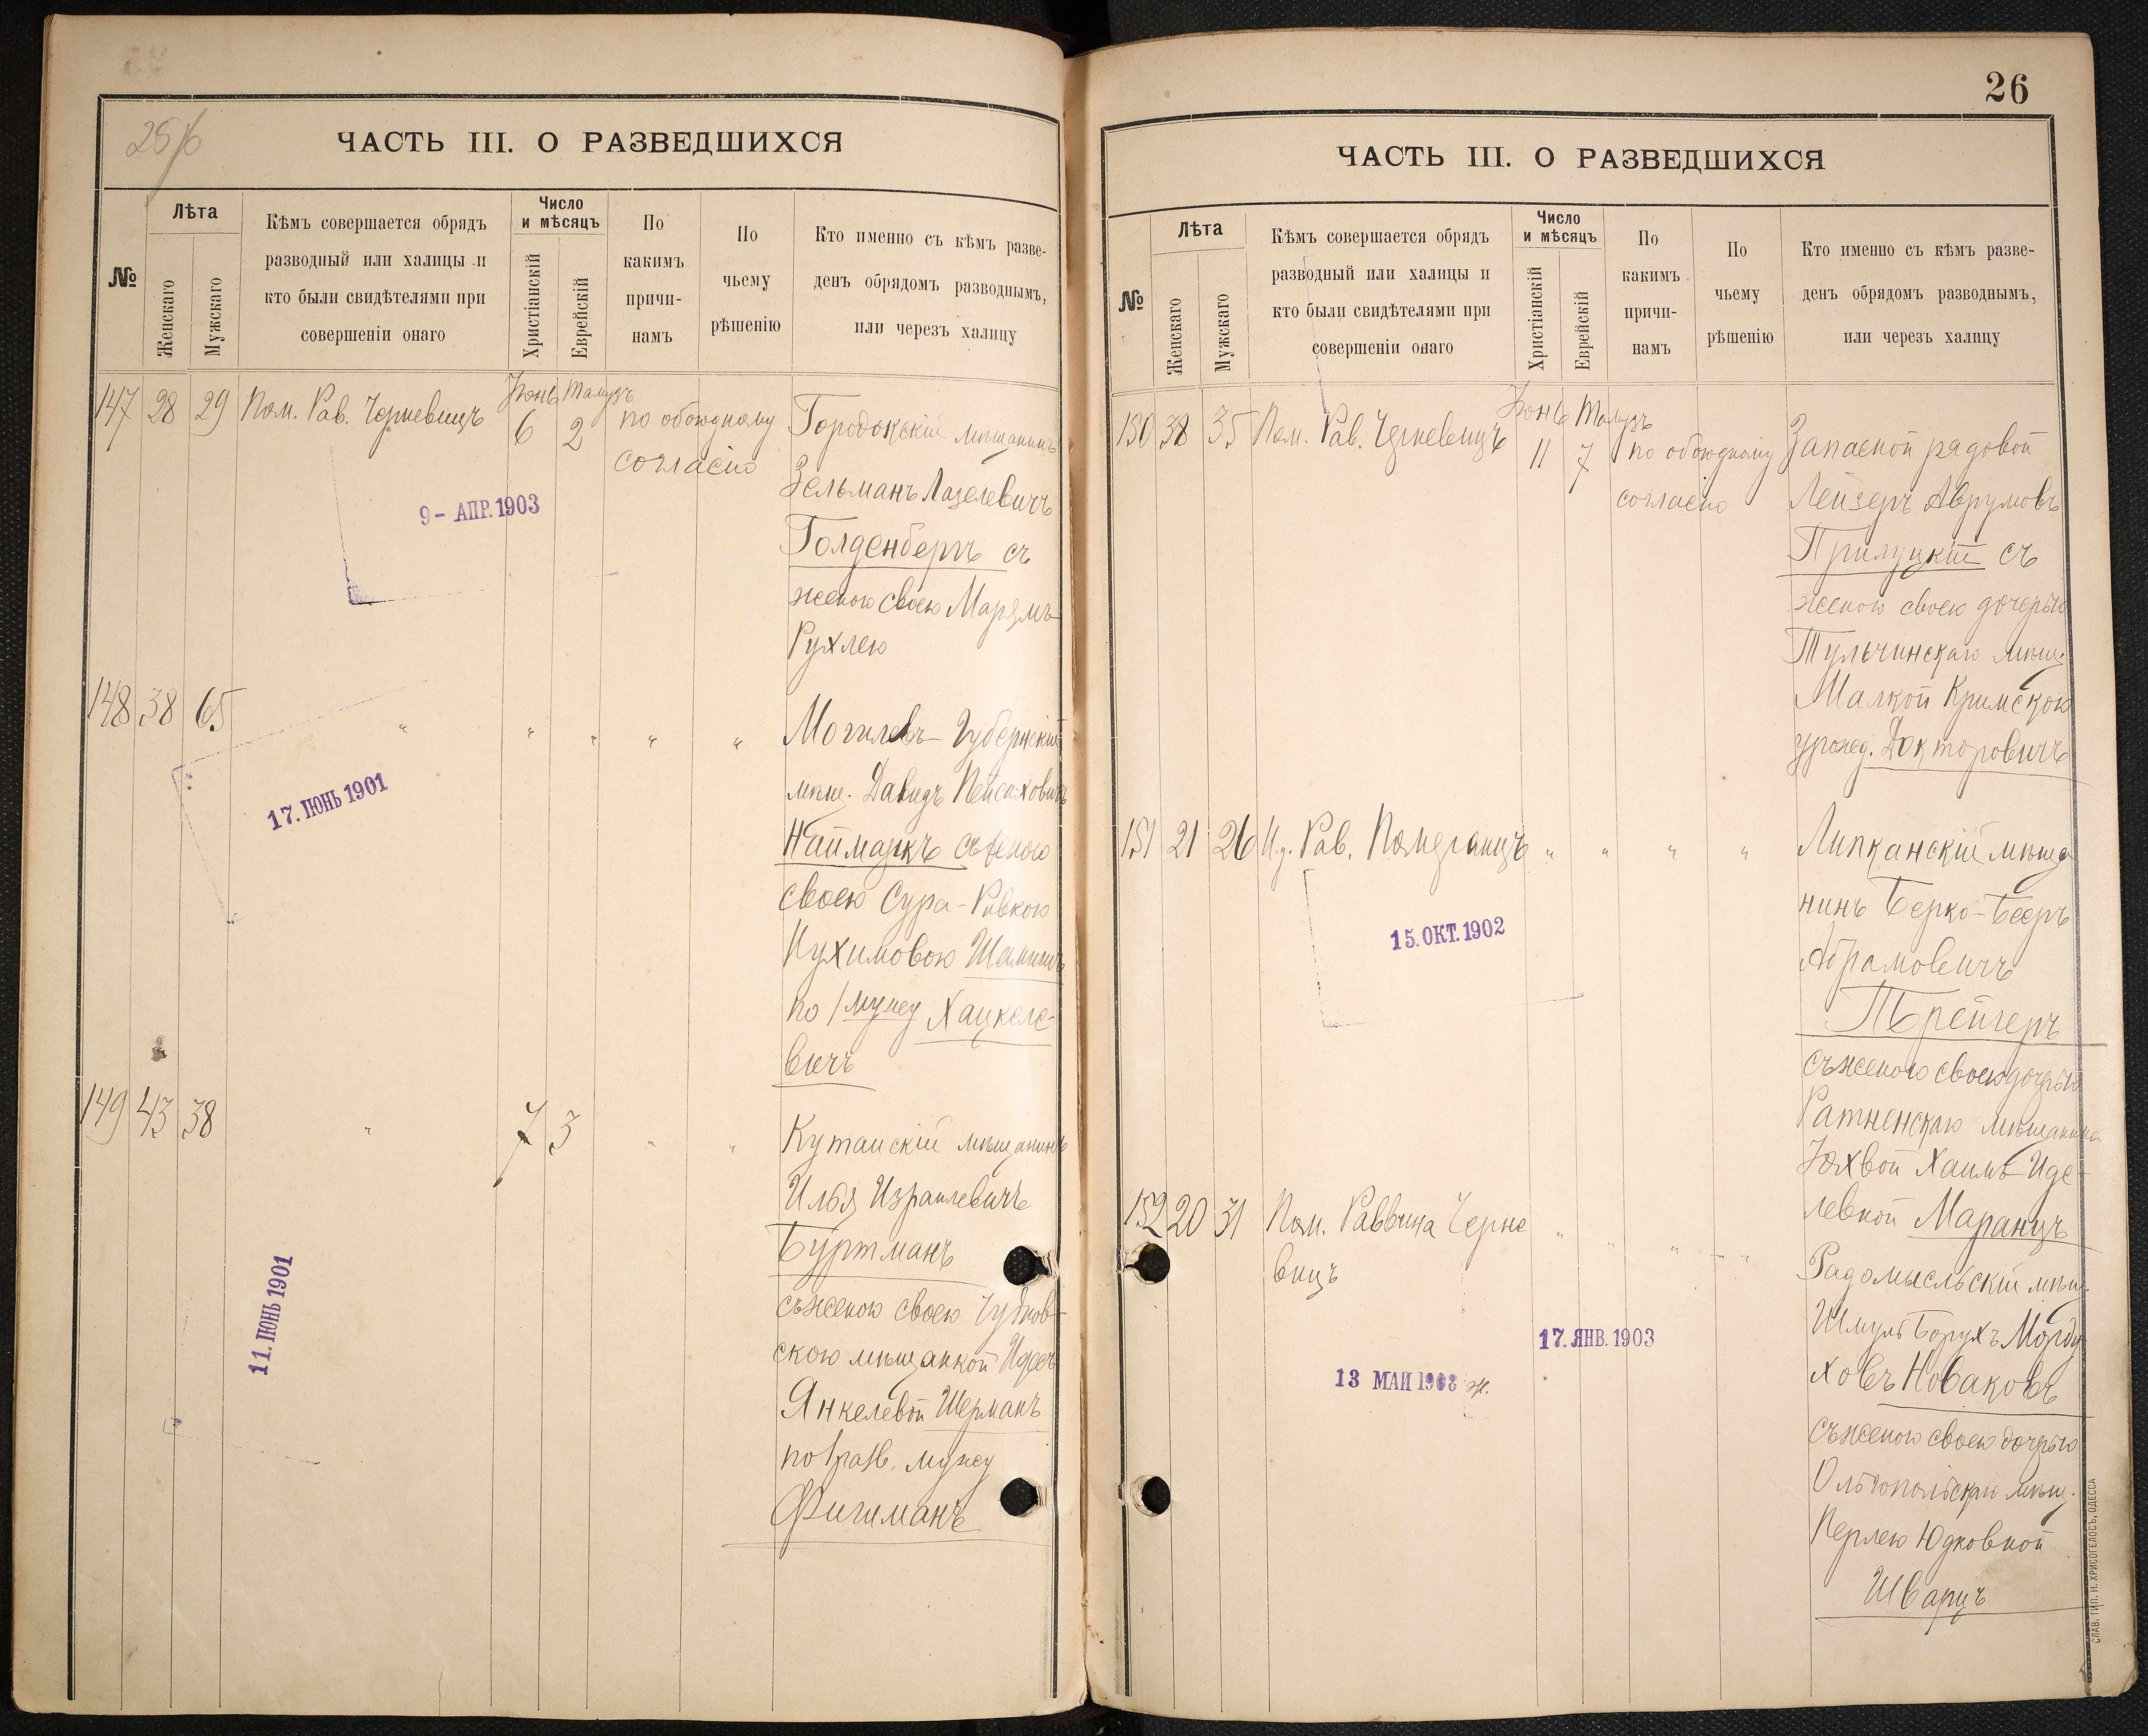 25/6
ЧАСТЬ III. О РАЗВЕДШИХСЯ
№
Лѣта
Женскаго
Мужскаго
Кѣмъ совершается обрядъ
разводный или халицы и
кто были свидѣтелями при
совершеніи онаго
Число
и мѣсяцъ
Христіанскій
Еврейскій
По
какимъ
причи-
намъ
По
чьему
рѣшенію
Кто именно съ кѣмъ разве-
денъ обрядомъ разводнымъ,
или черезъ халицу
147 28 29 Пом. Рав. Черневицъ
Юнь Тамузъ
6 2
по обоюдному
согласію
Городокскій мѣщанинъ
Зельманъ Лазелевичъ
Голденбергъ съ
женою своею Марямъ
Рухлею
9- АПР. 1903
148 38 65 " " " " "
Могилевъ-Губернскій
мѣщ. Давидъ Пейсаховичъ
Наймаркъ съ женою
своею Сура-Ривкою
Нухимовою
по 1 мужу Хацкеле-
вичъ
17. ІЮНЬ 1901
149 43 38 " 7 3 " "
Кутаискій мѣщанинъ
Илья Израилевичъ
Буртманъ
съ женою своею Чуднов-
скою мѣщанкой Идесъ
Янкелевой Шерманъ
по 1 разв. мужу
Фигиманъ
11. ІЮНЬ 1901
26
ЧАСТЬ III. О РАЗВЕДШИХСЯ
№
Лѣта
Женскаго
Мужскаго
Кѣмъ совершается обрядъ
разводный или халицы и
кто были свидѣтелями при
совершеніи онаго
Число
и мѣсяцъ
Христіанскій
Еврейскій
По
какимъ
причи-
намъ
По
чьему
рѣшенію
Кто именно съ кѣмъ разве-
денъ обрядомъ разводнымъ,
или черезъ халицу
150 38 35 Пом. Рав. Черневицъ
Юнь Тамузъ
11 7
по обоюдному
согласію
Запасной рядовой
Лейзеръ Аврумовъ
Прилуцкій съ
женою своею дочерью
Тульчинскаго мѣщ.
Малкой Кримскою
урожд. Докторовичъ
151 21 26 И.д. Рав. Померанцъ " " " "
Липканскій мѣща
нинъ Берко-Бееръ
Абрамовичъ
Трейгеръ
съ женою своею дочерью
Ратненскаго мѣщанина
Юхвой Хаимъ-Иде-
левной Маранцъ
15. ОКТ. 1902
152 20 31 Пом. Раввина Черне
вицъ
" " " "
Радомысльскій мѣщ.
Шмуль Борухъ Морду
ховъ Новаковъ
съ женою своею дочерью
Ольгопольскаго мѣщ.
Перлею Юдковной
Шварцъ
17. ЯНВ. 1903
13 МАИ 1908 ж.
СЛАВ. ТИП. Н. ХРИСОГЕЛОСЪ, ОДЕССА